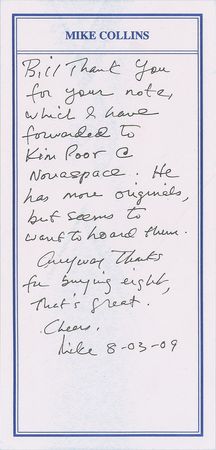 MIKE COLLINS
Bill Thank You
for your note,
which I have
forwarded to
Kim Poor @
Novaspace. He
has more originals,
but seems to
want to hoard them.
Anyway Thanks
for buying eight,
that's great.
Cheers,
Mike 8-03-09